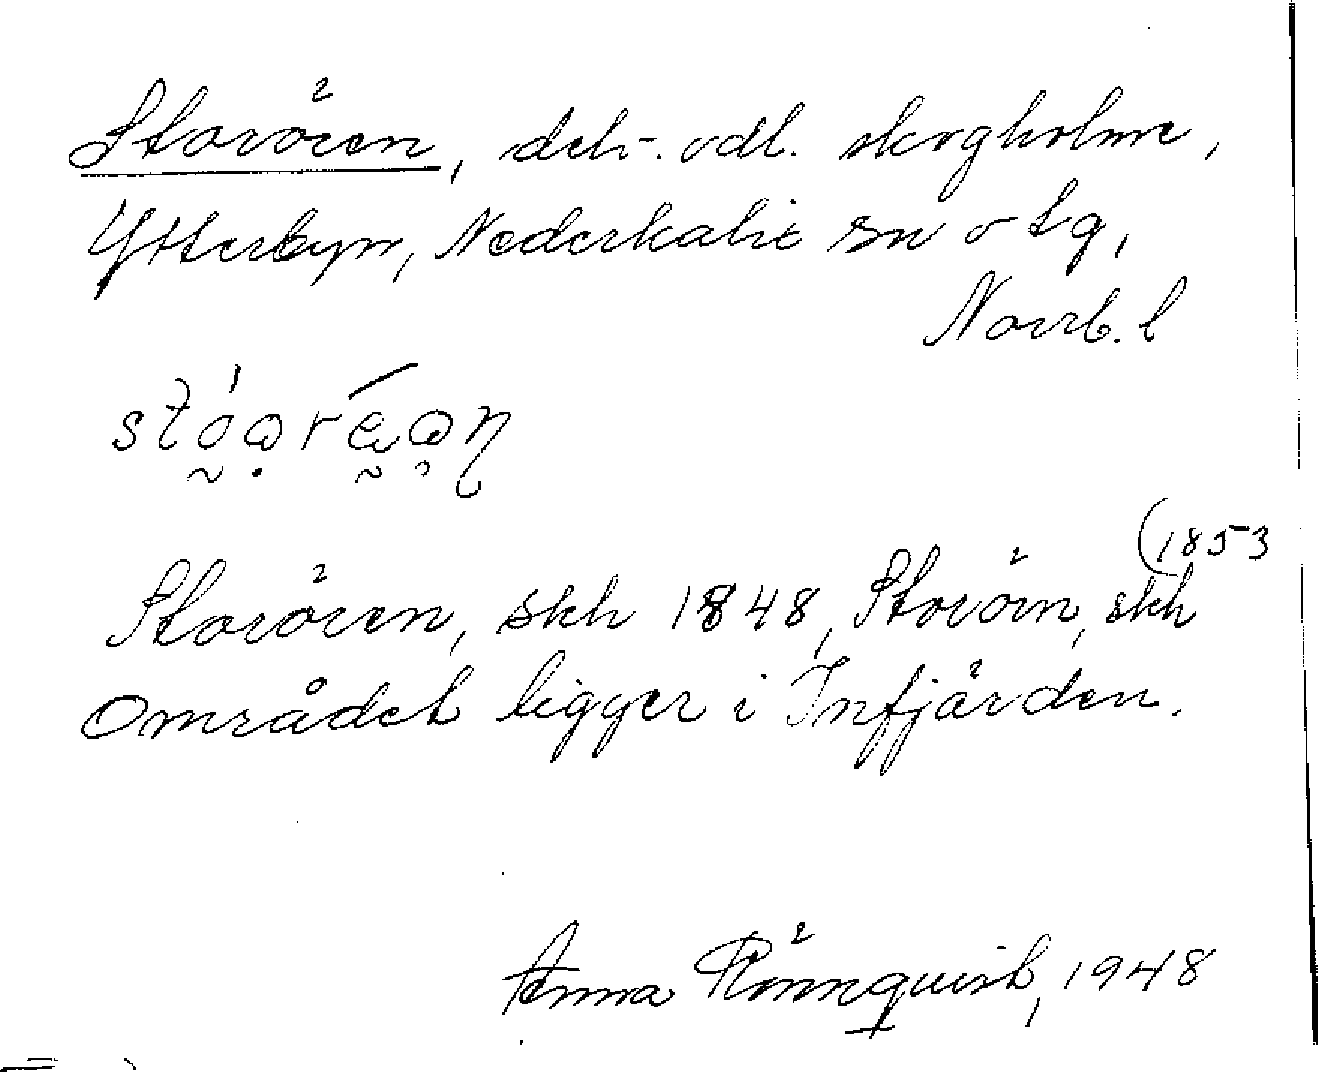 Storören, delv. odl. skogholme,
Ytterbyn, Nederkalix sn o tg,
Norrb. l
Storören, skh 1848, Storörn, skh (1853
Området ligger i Infjärden.
Anna Rönnquist, 1948